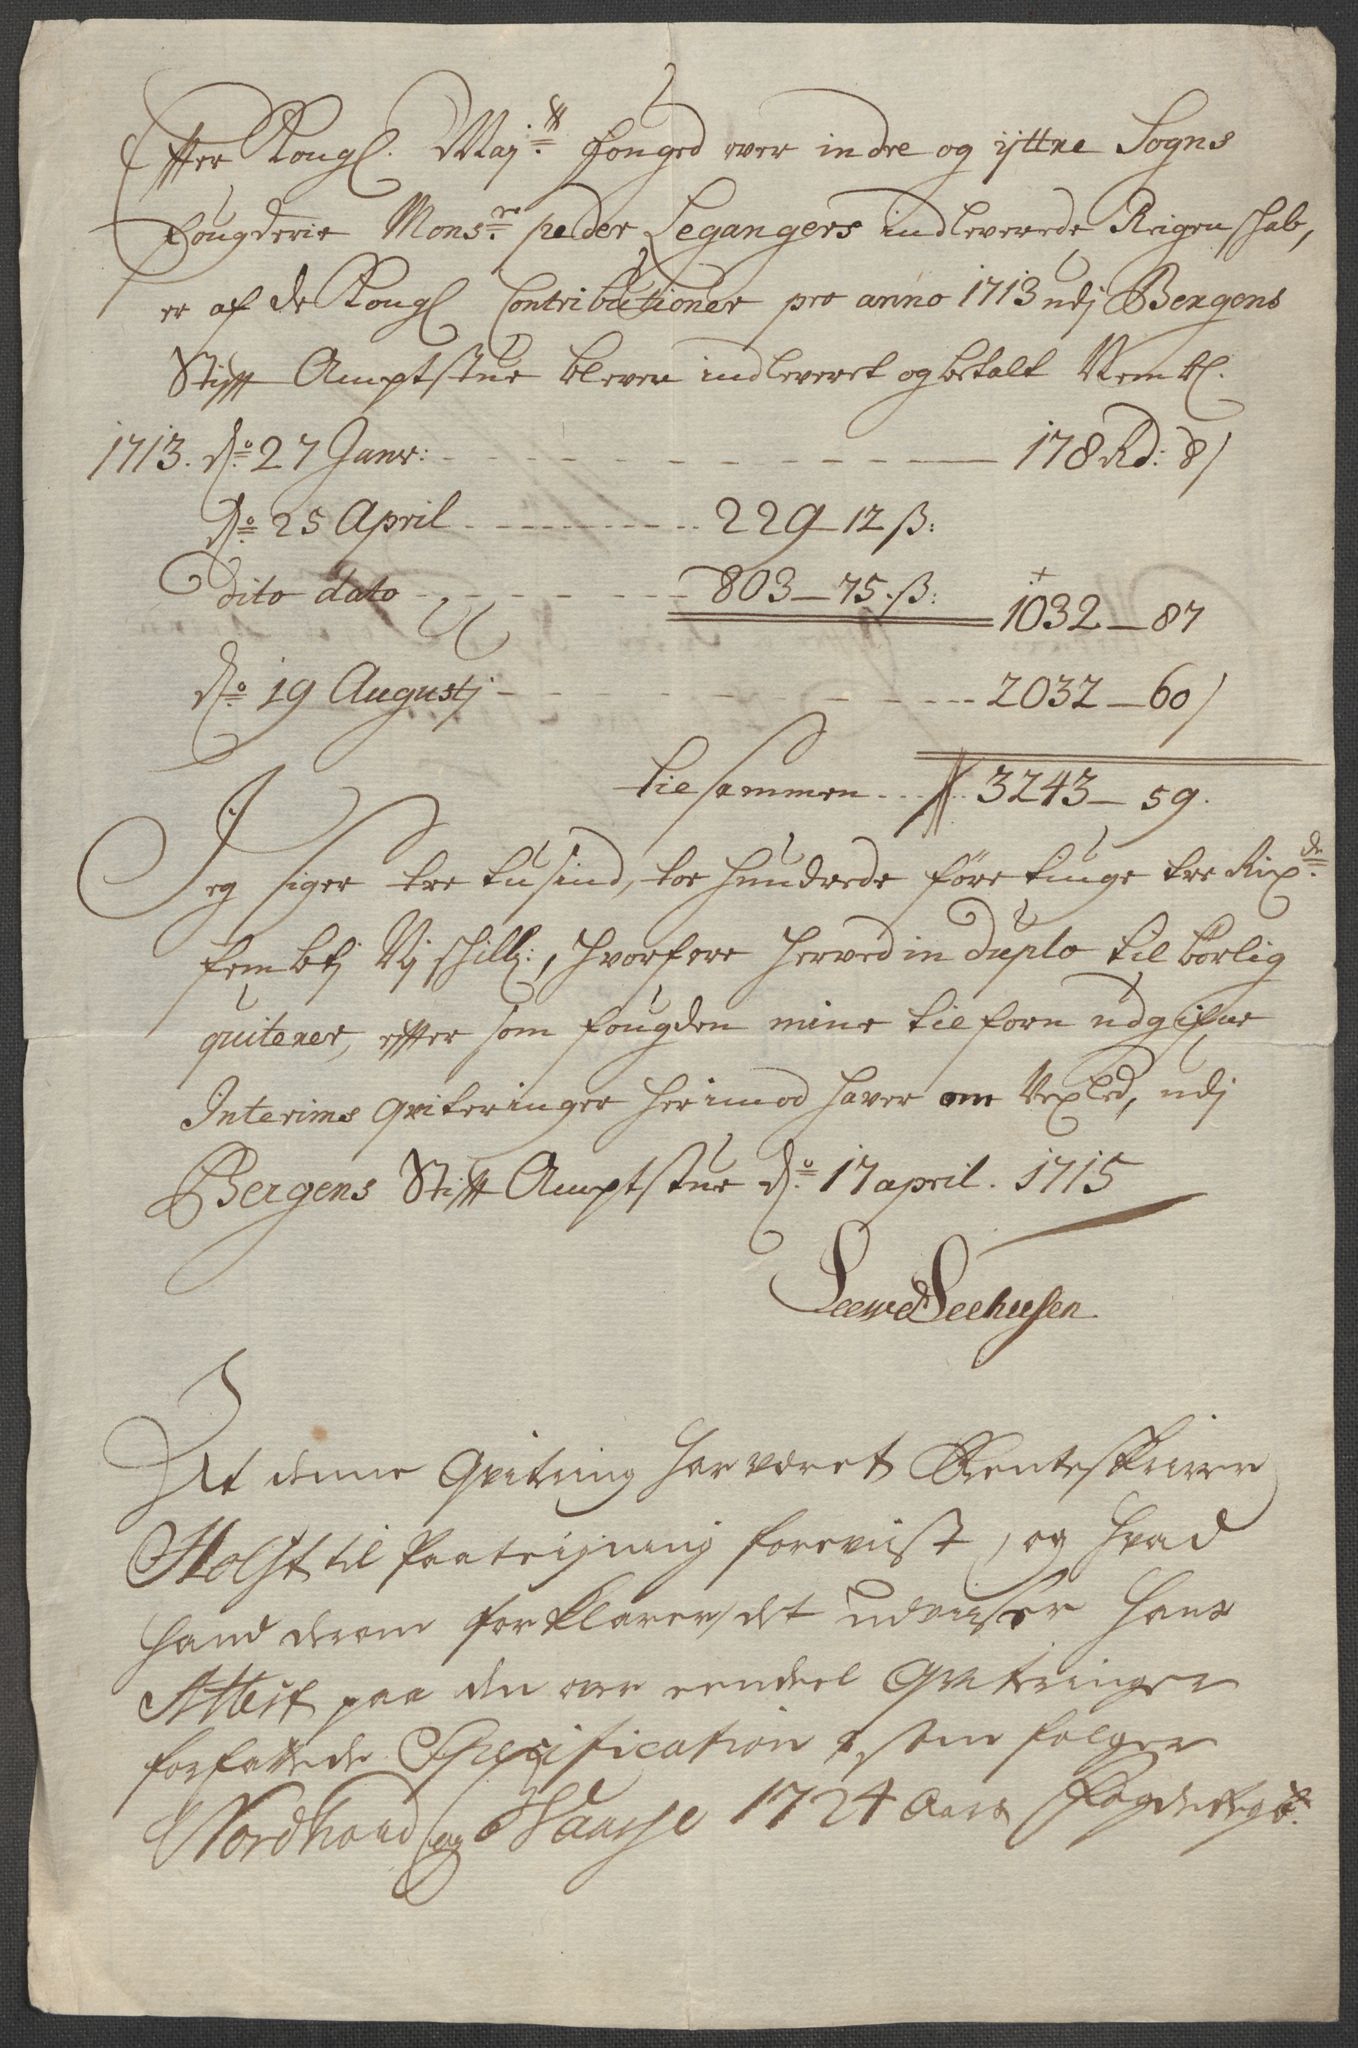 Effter Kongl. Maj:tz fouged over indre og yttre Sogns
fougderie Monsr. peder Legangers indleverede Reigenschab,
er af de Kongl Contributioner pro anno 1713 udj Bergens
Stifft Amptstue bleven indleveret og betalt Neml.
1713. d: 27 Janv: 178 Rd: 8/
d: 25 April 229 - 12 ß:
dito dato 803 - 75 ß: 1032 - 87
d: 19 Augustj 2032 - 60/
tilsammen 3243 - 59.
Jeg siger tre tusind, toe hundrede förretiuge tre Rixdr.
fembtj Nj schill:, hvorfore herved in duplo til börlig
quiterer, effter som fougden mine tilforn udgifne
Interims qviteringer herimod haver om Vexled, udj
Bergens Stifft Amptstue d: 17 april. 1715
Seehusen
At denne Qvitering har været Renteskriver
Holst til Paateigning foreviist, og hvad
hand derom forklarer, det udviser hans
Attest paa den over eendeel Qviteringer
forfattede Specification, som følger
Nordhord og Waasse 1724 Aars Fogderegsk.